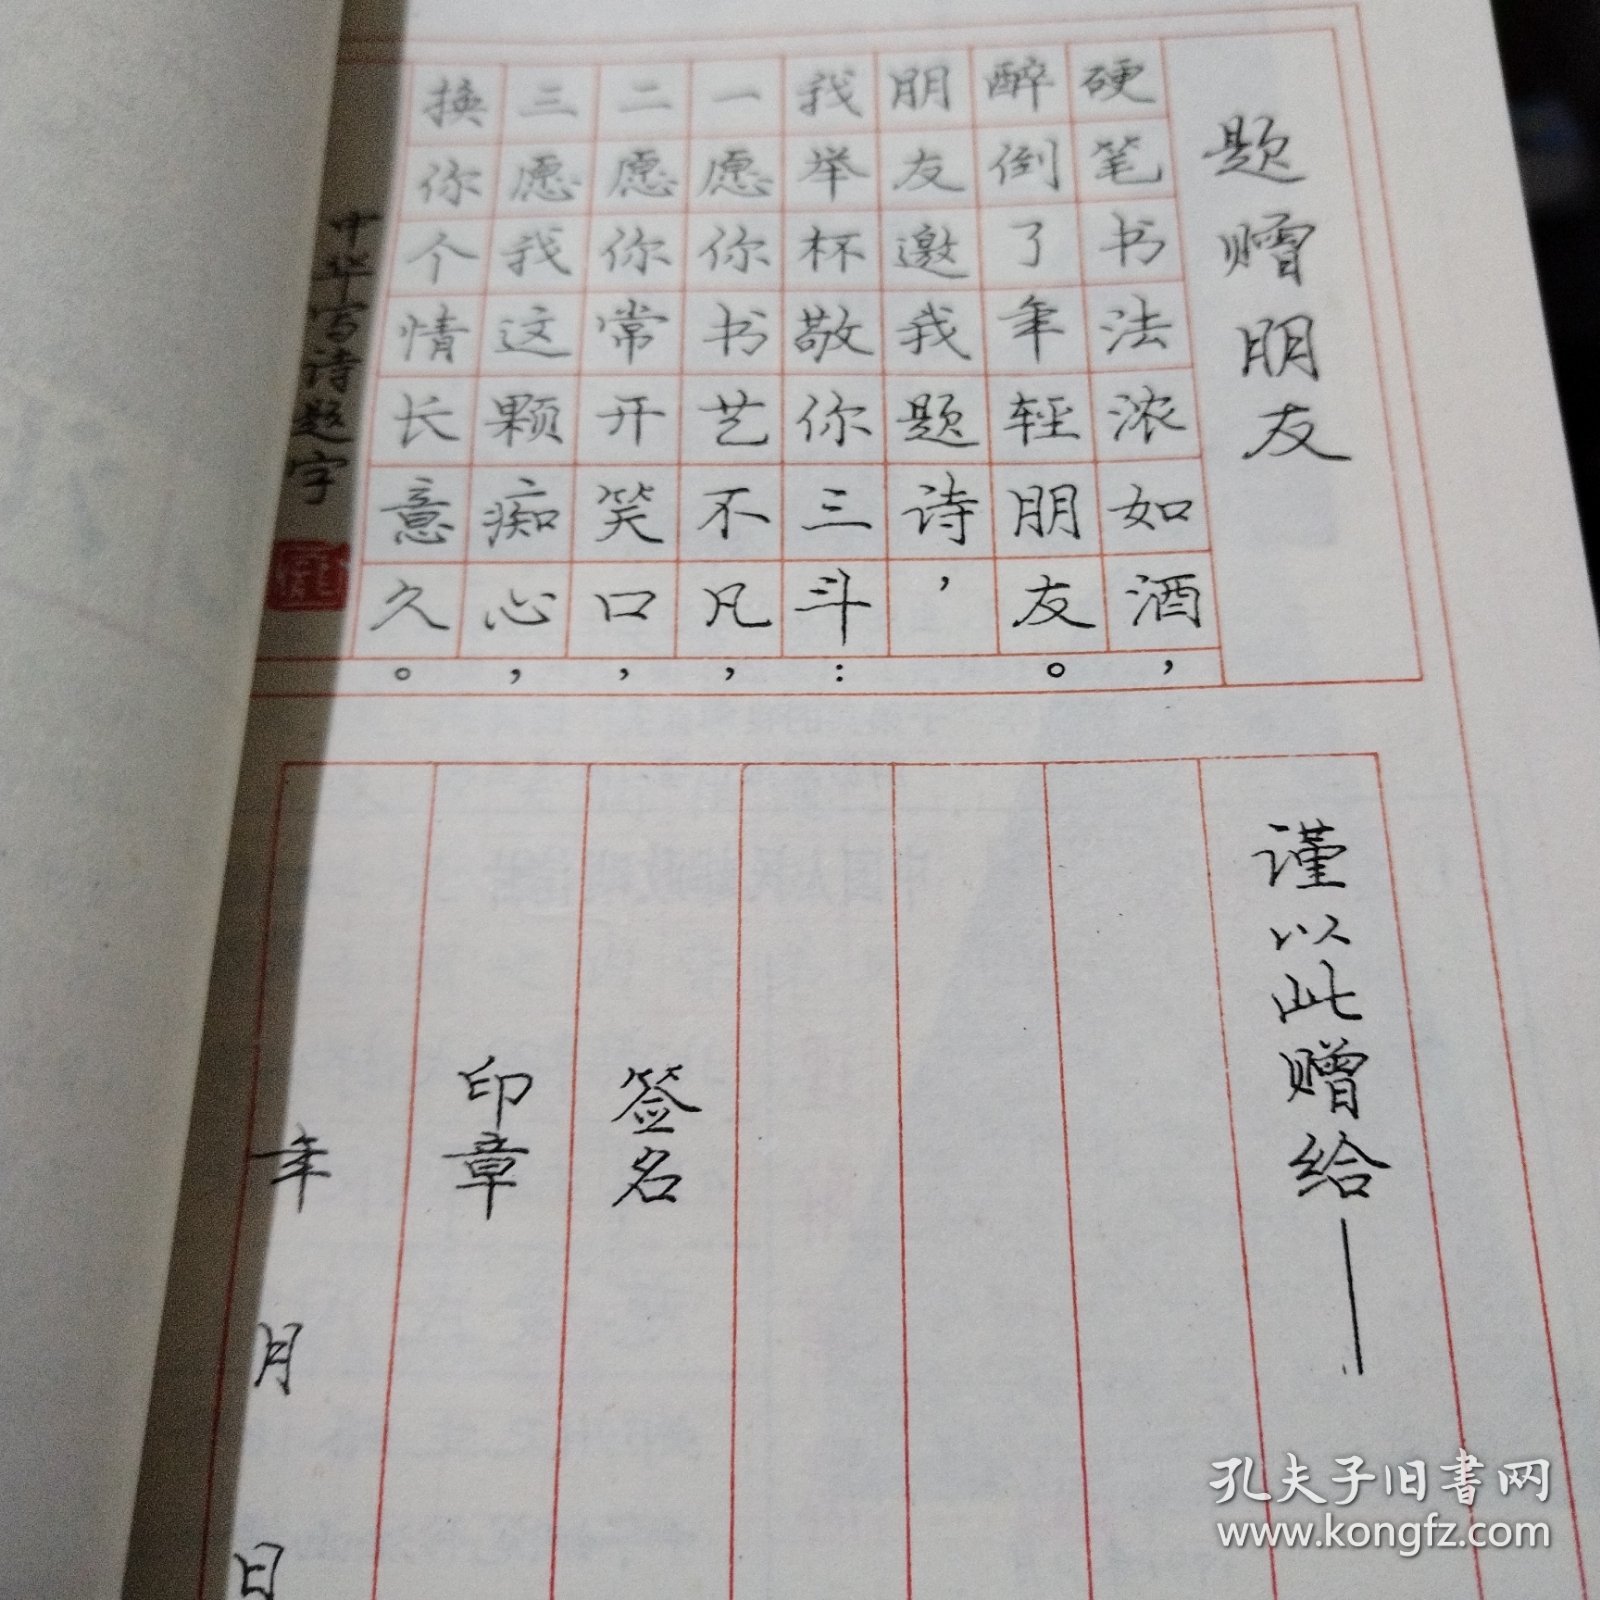 题赠朋友
硬笔书法浓如酒，
醉倒了年轻朋友。
朋友邀我题诗，
我举杯敬你三斗：
一愿你书艺不凡，
二愿你常开笑口，
三愿我这颗痴心，
换你个情长意久。
中华写诗题字
谨以此赠给——
签名
印章
年月日
孔夫子旧书网
www.kongfz.com